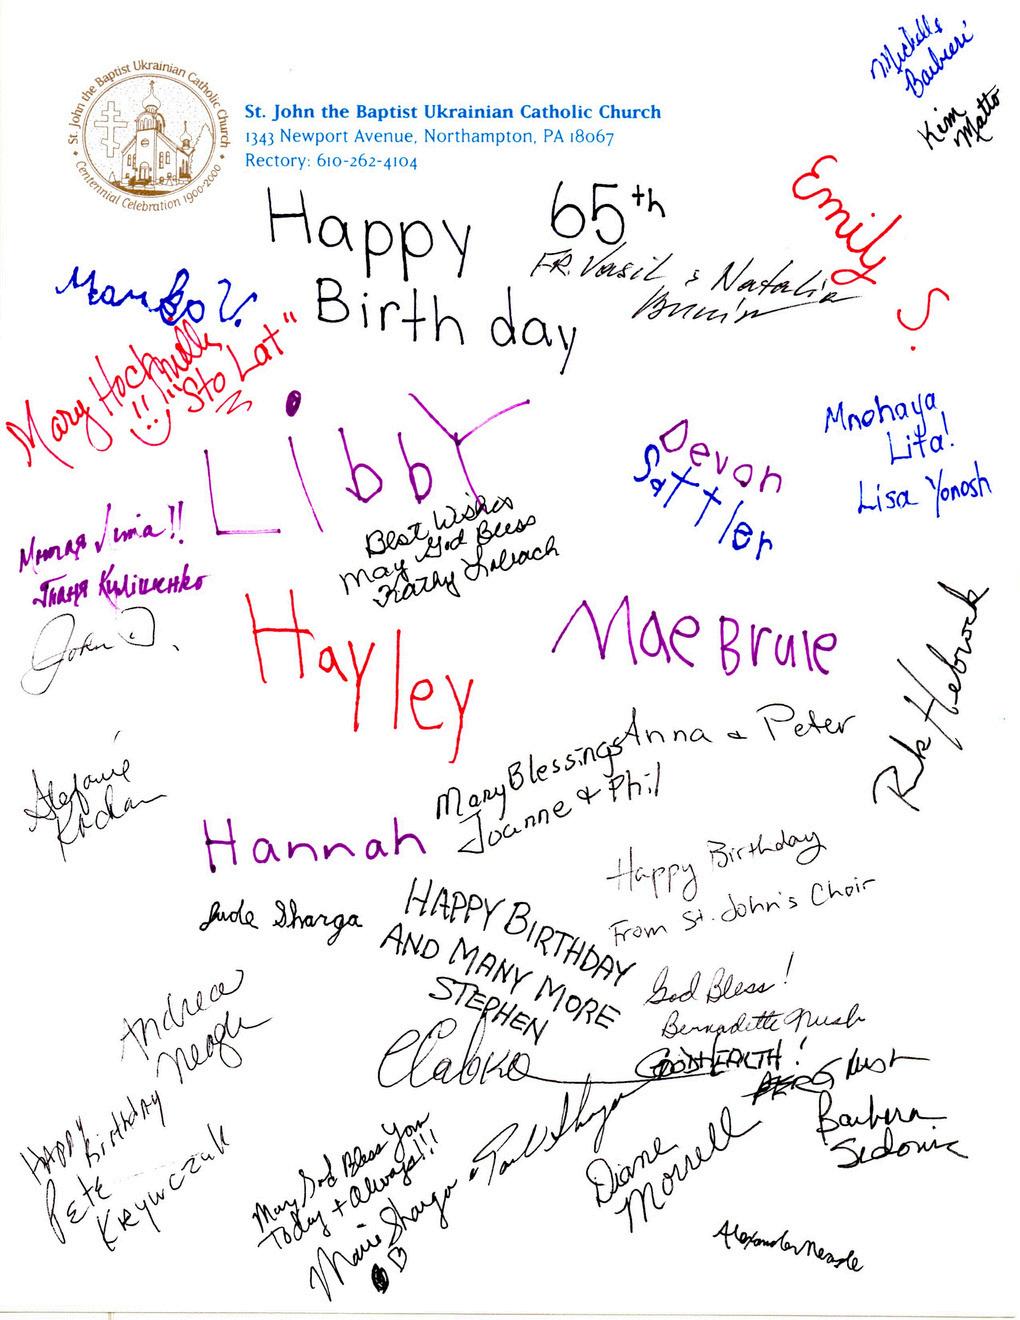 St. John the Baptist Ukrainian Catholic Church
Centennial Celebration 1900-2000
St. John the Baptist Ukrainian Catholic Church
1343 Newport Avenue, Northampton, PA 18067
Rectory: 610-262-4104
Michelle
Barbieri
Kim
Matto
Happy
Birthday
65th
FR. Vasil & Natalia
Emily
S.
Marko V.
Mary
!!
"Sto Lat"
LibbY
Devon
Sattler
Mnohaya
Lita!
Lisa Yonosh
Многая Літа!!
Таня
Best Wishes
May God Bless
Kathy
John D.
Hayley
Mae Brule
Rik Hebrock
Stefanie
Many Blessings Anna & Peter
Joanne & Phil
Hannah
Jude Sharga
HAPPY BIRTHDAY
AND MANY MORE
STEPHEN
Happy Birthday
From St. John's Choir
God Bless!
Bernadette Nush
GOOD HEALTH!
Andrea
Neagle
Happy
Birthday
Pete
Krywczuk
May God Bless You
Today + Always!!!
Marie Sharga & Paul Sharga
Diane
Morrell
Barbara
Sedonic
Alexander Neagle